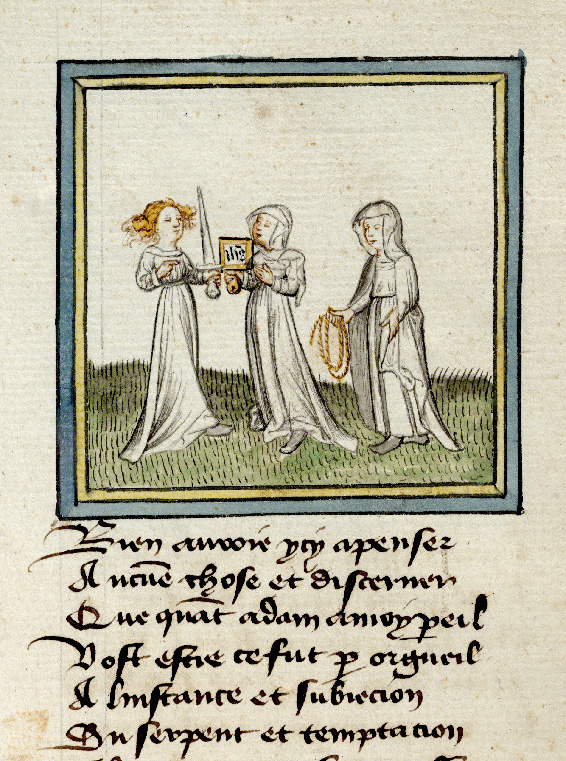 ihs
Bien auvoie ycy apenser
Aucūe chose et discerner
Que quāt adam a moy peil
Vost estre ce fut p orgueil
A linstance et subiecion
Du serpent et temptacion